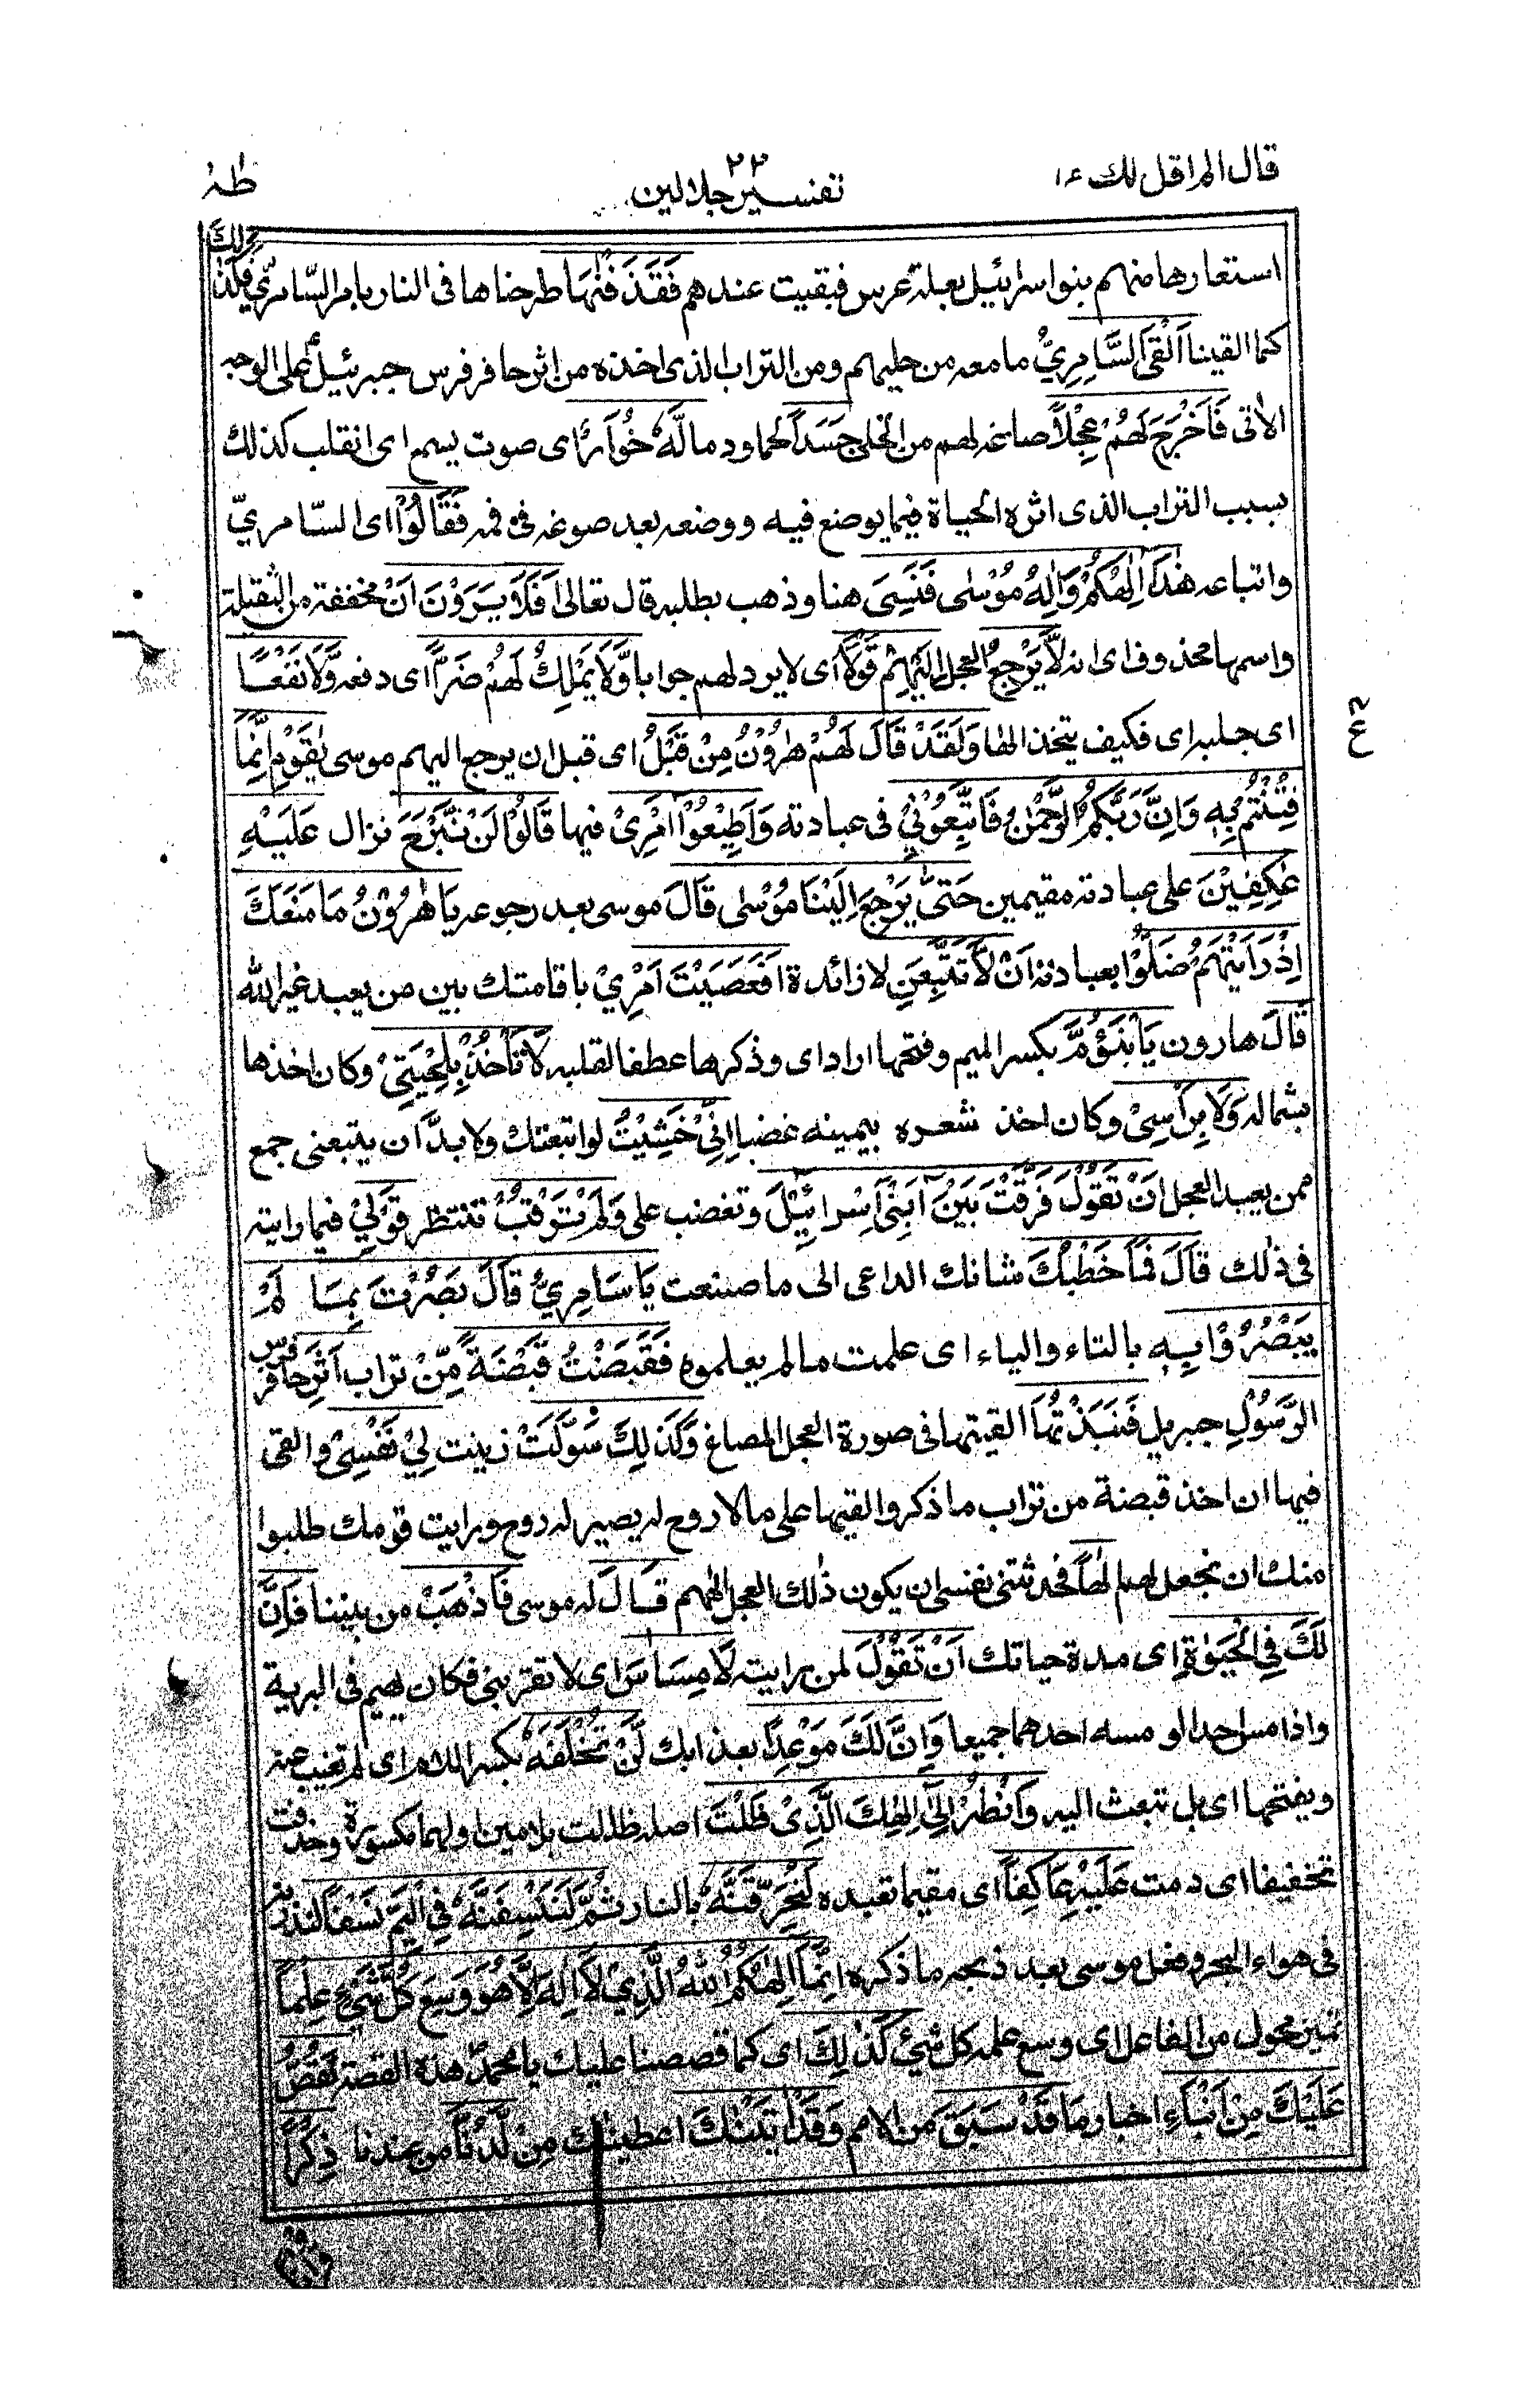 قال الم اقل لك ١٦
٢٢
تفسير جلالين
طٰهٰ
استعارها منهم بنو اسرائيل بعلة عرس فبقيت عندهم فَقَذَفْنٰهَا طرحناها فى النار بامر السّامرىّ فَكَذٰلِكَ
كما القينا اَلْقَى السَّامِرِيُّ ما معه من حليهم ومن التراب الذى اخذه من اثر حافر فرس جبرئيل على الوجه
الاٰتى فَاَخْرَجَ لَهُمْ عِجْلًا صاغه لهم من الحلى جَسَدًا لحما ودما لَّهٗ خُوَارٌ اى صوت يسمع اى انقلب كذلك
بسبب التراب الذى اثره الحياة فيما يوضع فيه ووضعه بعد صوغه فى فمه فَقَالُوْا اى السّامرىّ
واتباعه هٰذَا اِلٰهُكُمْ وَاِلٰهُ مُوْسٰى فَنَسِيَ هنا وذهب يطلبه قال تعالىٰ اَفَلَا يَرَوْنَ اَنْ مخففة من الثقيلة
واسمها محذوف اى انه لَّا يَرْجِعُ العجل اِلَيْهِمْ قَوْلًا اى لا يرد لهم جوابا وَّلَا يَمْلِكُ لَهُمْ ضَرًّا اى دفعه وَّلَا نَفْعًا
اى جلبه اى فكيف يتخذ الها وَلَقَدْ قَالَ لَهُمْ هٰرُوْنُ مِنْ قَبْلُ اى قبل ان يرجع اليهم موسى يٰقَوْمِ اِنَّمَا
فُتِنْتُمْ بِهٖ وَاِنَّ رَبَّكُمُ الرَّحْمٰنُ فَاتَّبِعُوْنِيْ فى عبادته وَاَطِيْعُوْا اَمْرِيْ فيها قَالُوْا لَنْ نَّبْرَحَ نزال عَلَيْهِ
عٰكِفِيْنَ على عبادته مقيمين حَتّٰى يَرْجِعَ اِلَيْنَا مُوْسٰى قَالَ موسى بعد رجوعه يَا هٰرُوْنُ مَا مَنَعَكَ
اِذْ رَاَيْتَهُمْ ضَلُّوْا بعبادته اَنْ لَّا تَتَّبِعَنِ لا زائدة اَفَعَصَيْتَ اَمْرِيْ باقامتك بين من يعبد غير الله
قَالَ هارون يَابْنَؤُمَّ بكسر الميم وفتحها اراد اى وذكرها عطفا لقلبه لَا تَاْخُذْ بِلِحْيَتِيْ وكان اخذها
بشماله وَلَا بِرَاْسِيْ وكان اخذ شعره بيمينه غضبا اِنِّيْ خَشِيْتُ لو اتبعتك ولا بدّ ان يتبعنى جمع
ممن يعبد العجل اَنْ تَقُوْلَ فَرَّقْتَ بَيْنَ بَنِيْ اِسْرَائِيْلَ وتغضب على وَلَمْ تَرْقُبْ تنتظر قَوْلِيْ فيما رايته
فى ذٰلك قَالَ فَمَا خَطْبُكَ شانك الداعى الى ما صنعت يَا سَامِرِيُّ قَالَ بَصُرْتُ بِمَا لَمْ
يَبْصُرُوْا بِهٖ بالتاء والياء اى علمت ما لم يعلموه فَقَبَضْتُ قَبْضَةً مِّنْ تراب اَثَرِ حافر فرس
الرَّسُوْلِ جبريل فَنَبَذْتُهَا القيتها فى صورة العجل المصاغ وَكَذٰلِكَ سَوَّلَتْ زينت لِيْ نَفْسِيْ والقى
فيها ان اخذ قبضة من تراب ما ذكر والقيها على ما لا روح له يصير له روح ورايت قومك طلبوا
منك ان تجعل لهم الٰها فحدثتنى نفسى ان يكون ذٰلك العجل الٰههم قَالَ له موسى فَاذْهَبْ من بيننا فَاِنَّ
لَكَ فِي الْحَيٰوةِ اى مدة حياتك اَنْ تَقُوْلَ لمن رايته لَا مِسَاسَ اى لا تقربنى فكان يهيم فى البرية
واذا مس احدا او مسه احد حما جميعا وَاِنَّ لَكَ مَوْعِدًا بعذابك لَّنْ تُخْلَفَهٗ بكسر اللام اى لم تغيب عنه
وبفتحها اى بل تبعث اليه وَانْظُرْ اِلٰى اِلٰهِكَ الَّذِيْ ظَلْتَ اصله ظللت بلامين اولهما مكسورة وحذفت
تخفيفا اى دمت عَلَيْهِ عَاكِفًا اى مقيما تعبده لَنُحَرِّقَنَّهٗ بالنار ثُمَّ لَنَنْسِفَنَّهٗ فِي الْيَمِّ نَسْفًا لنذرينه
فى هواء البحر وفعل موسى بعد ذبحه ما ذكره اِنَّمَا اِلٰهُكُمُ اللّٰهُ الَّذِيْ لَا اِلٰهَ اِلَّا هُوَ وَسِعَ كُلَّ شَيْءٍ عِلْمًا
تميز محول من الفاعل اى وسع علمه كل شئ كَذٰلِكَ اى كما قصصنا عليك يا محمد هذه القصة نَقُصُّ
عَلَيْكَ مِنْ اَنْبَآءِ اخبار مَا قَدْ سَبَقَ من الامم وَقَدْ اٰتَيْنٰكَ اعطيناك مِنْ لَّدُنَّا من عندنا ذِكْرًا